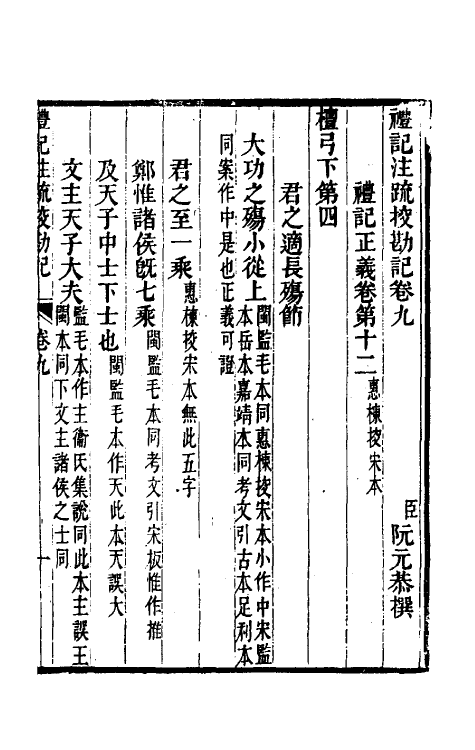 禮記注疏挍勘記卷九
臣阮元恭撰
禮記正義卷第十二惠棟挍宋本
檀弓下第四
君之適長殤節
大功之殤小從上閩監毛本同惠棟挍宋本小作中宋監
本岳本嘉靖本同考文引古本足利本
同案作中是也正義可證
君之至一乘惠棟挍宋本無此五字
鄭惟諸侯旣七乘閩監毛本同考文引宋板惟作推
及天子中士下士也閩監毛本作天此本天誤大
文主天子大夫監毛本作主衞氏集說同此本主誤王
閩本同下文主諸侯之士同
禮記注疏挍勘記
卷九
一